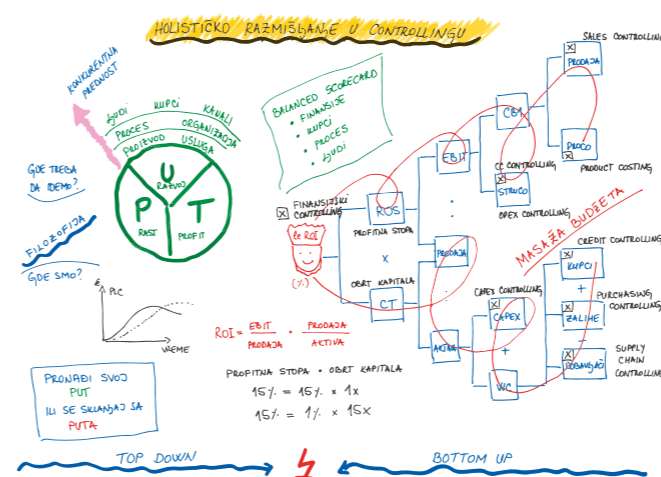 HOLISTIČKO RAZMIŠLJANJE U CONTROLLINGU
KONKURENTNA
PREDNOST
LJUDI KUPCI KANALI
PROCES ORGANIZACIJA
PROIZVOD USLUGA
U
RAZVOJ
P
RAST
T
PROFIT
GDE TREBA
DA IDEMO?
FILOZOFIJA
GDE SMO?
€
PLC
VREME
PRONAĐI SVOJ
PUT
ILI SE SKLANJAJ SA
PUTA
BALANCED SCORECARD
• FINANSIJE
• KUPCI
• PROCES
• LJUDI
FINANSIJSKI
CONTROLLING
le ROI
(%)
ROS
PROFITNA STOPA
x
OBRT KAPITALA
CT
EBIT
:
PRODAJA
PRODAJA
:
AKTIVA
CB1
CC CONTROLLING
STRUCO
OPEX CONTROLLING
SALES CONTROLLING
PRODAJA
PROCO
PRODUCT COSTING
MASAŽA BUDŽETA
CAPEX CONTROLLING
CAPEX
+
WC
CREDIT CONTROLLING
KUPCI
+
PURCHASING
CONTROLLING
ZALIHE
-
SUPPLY
CHAIN
CONTROLLING
DOBAVLJAČI
ROI = EBIT / PRODAJA • PRODAJA / AKTIVA
PROFITNA STOPA • OBRT KAPITALA
15% = 15% x 1x
15% = 1% x 15x
TOP DOWN
BOTTOM UP